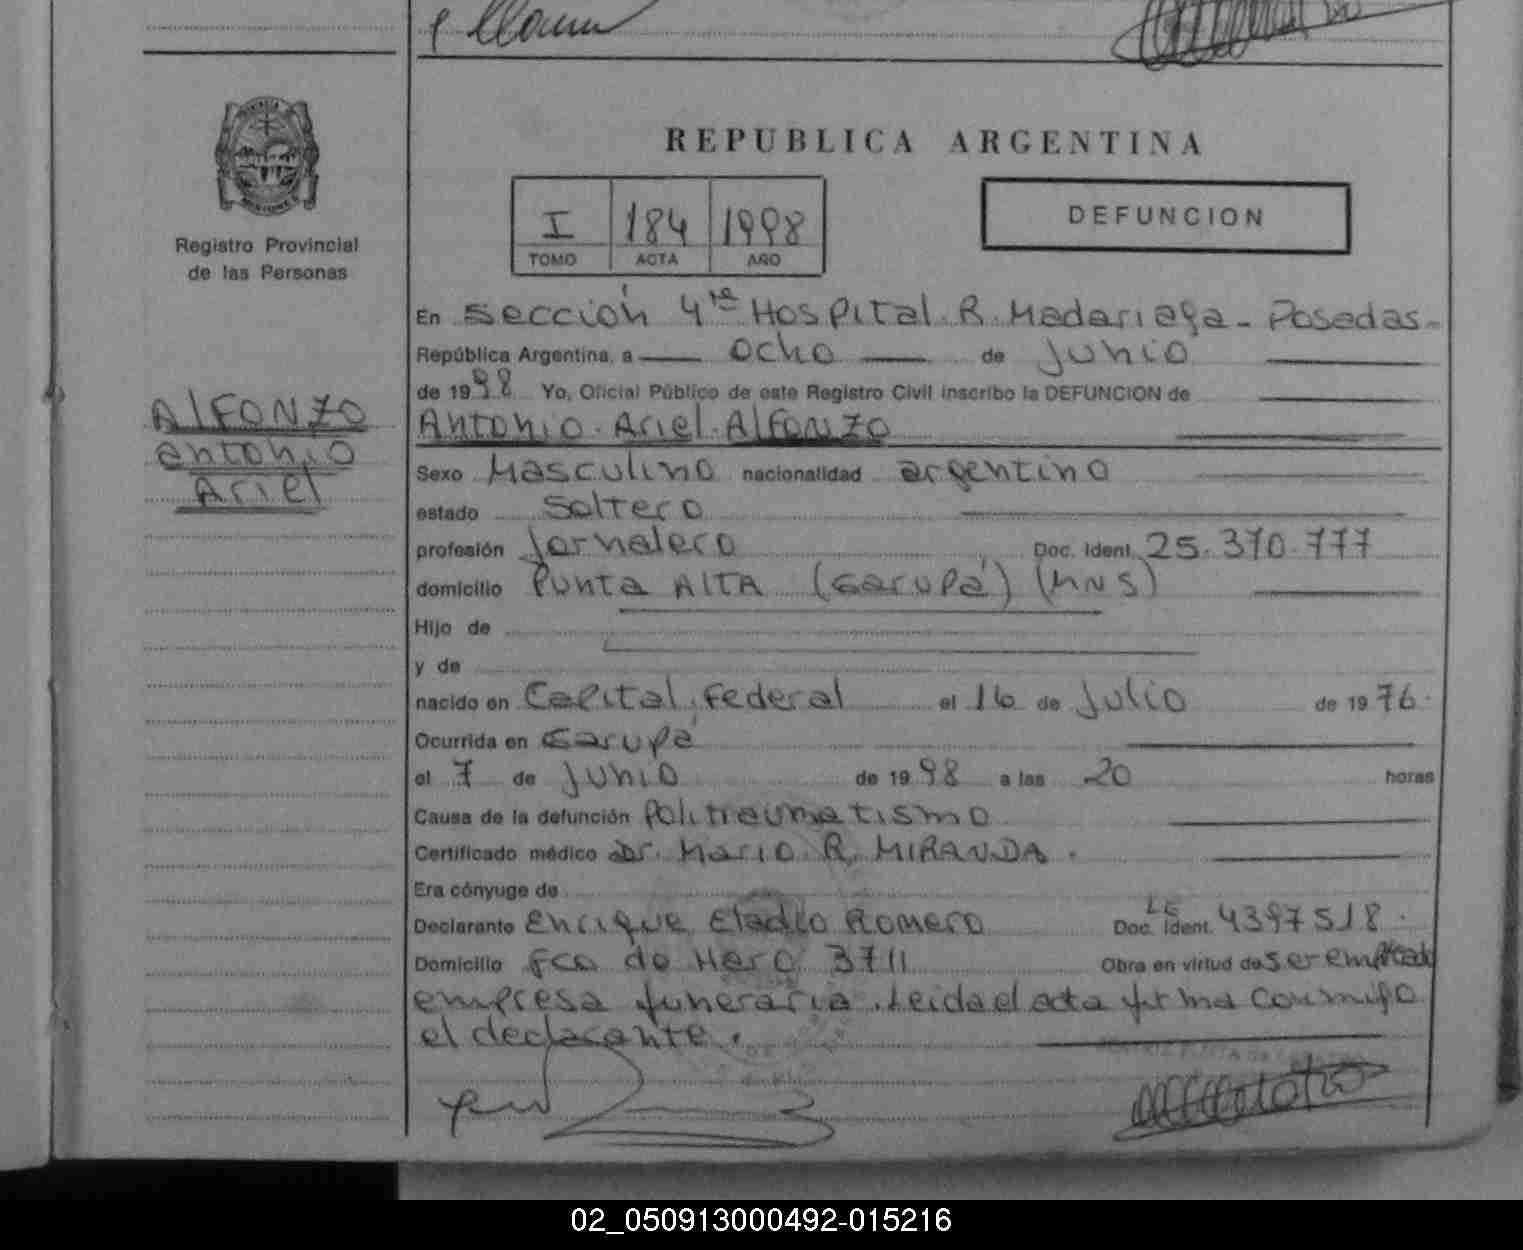 REPUBLICA ARGENTINA
I 184 1998
TOMO ACTA AÑO
DEFUNCION
Registro Provincial
de las Personas
ALFONZO
Antonio
Ariel
En Sección 4ta Hospital R. Madariaga - Posadas -
República Argentina, a ocho de junio
de 1998 Yo, Oficial Público de este Registro Civil inscribo la DEFUNCION de
Antonio Ariel ALFONZO
Sexo Masculino nacionalidad argentino
estado Soltero
profesión Jornalero Doc. Ident. 25.370.777
domicilio Punta ALTA (Garupá) (MNS)
Hijo de
y de
nacido en Capital Federal el 16 de Julio de 1976
Ocurrida en Garupá
el 7 de junio de 1998 a las 20 horas
Causa de la defunción Politraumatismo
Certificado médico Dr. Mario R. MIRANDA.
Era cónyuge de
Declarante Enrique Eladio Romero Doc. Ident. LE 4397518
Domicilio Fco de Haro 3711 Obra en virtud de ser empleado
empresa funeraria. Leida el acta firma conmigo
el declarante.
02_050913000492-015216